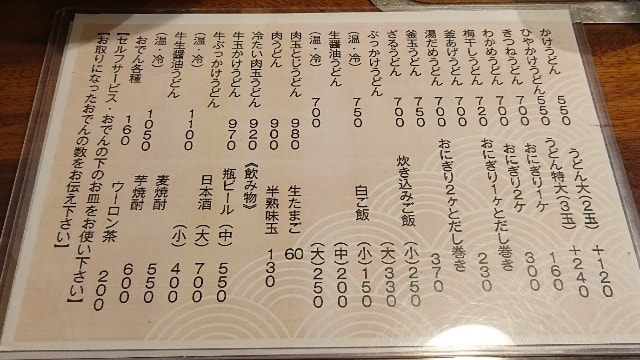 かけうどん 550
ひやかけうどん 550
きつねうどん 700
わかめうどん 700
梅干しうどん 720
釜あげうどん 700
湯だめうどん 700
釜玉うどん 750
ざるうどん 700
ぶっかけうどん
(温・冷) 750
生醤油うどん
(温・冷) 700
肉玉とじうどん 980
肉うどん 900
冷たい肉玉うどん 920
牛玉かけうどん 970
牛ぶっかけうどん
(温・冷) 1100
牛生醤油うどん
(温・冷) 1050
おでん各種 160
【セルフサービス・おでんの下のお皿をお使い下さい】
【お取りになったおでんの数をお伝え下さい】
うどん大(2玉) +120
うどん特大(3玉) +240
おにぎり1ヶ 160
おにぎり2ヶ 300
おにぎり1ヶとだし巻き 230
おにぎり2ヶとだし巻き 370
炊き込みご飯 (小)250
(大)330
白ご飯 (小)150
(中)200
(大)250
生たまご 60
半熟味玉 130
《飲み物》
瓶ビール (中) 550
日本酒 (大) 700
(小) 400
麦焼酎 550
芋焼酎 600
ウーロン茶 200